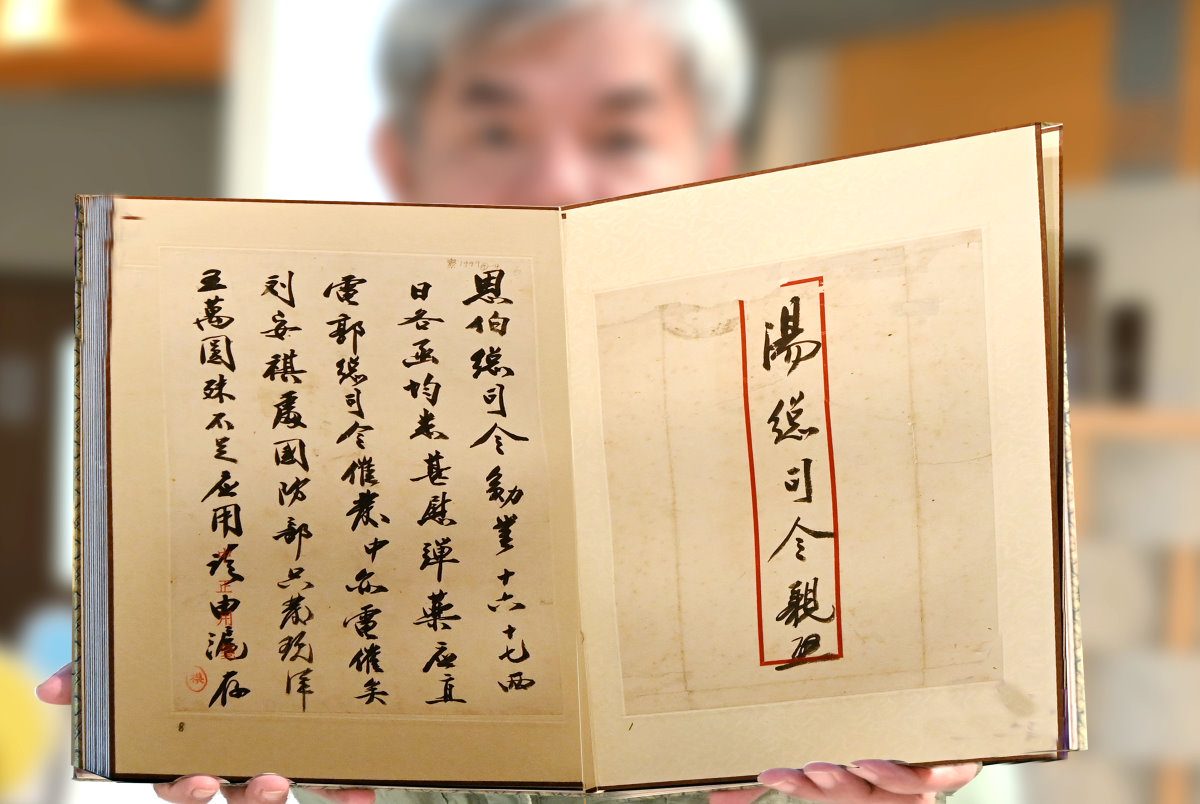 湯總司令親
恩伯總司令勛業十六十七兩
日各函均悉甚慰彈藥应直
電郭總司令催發中亦電催矣
刘安祺處國防部只發現洋
五萬圓殊不足应用由滬存
8
1